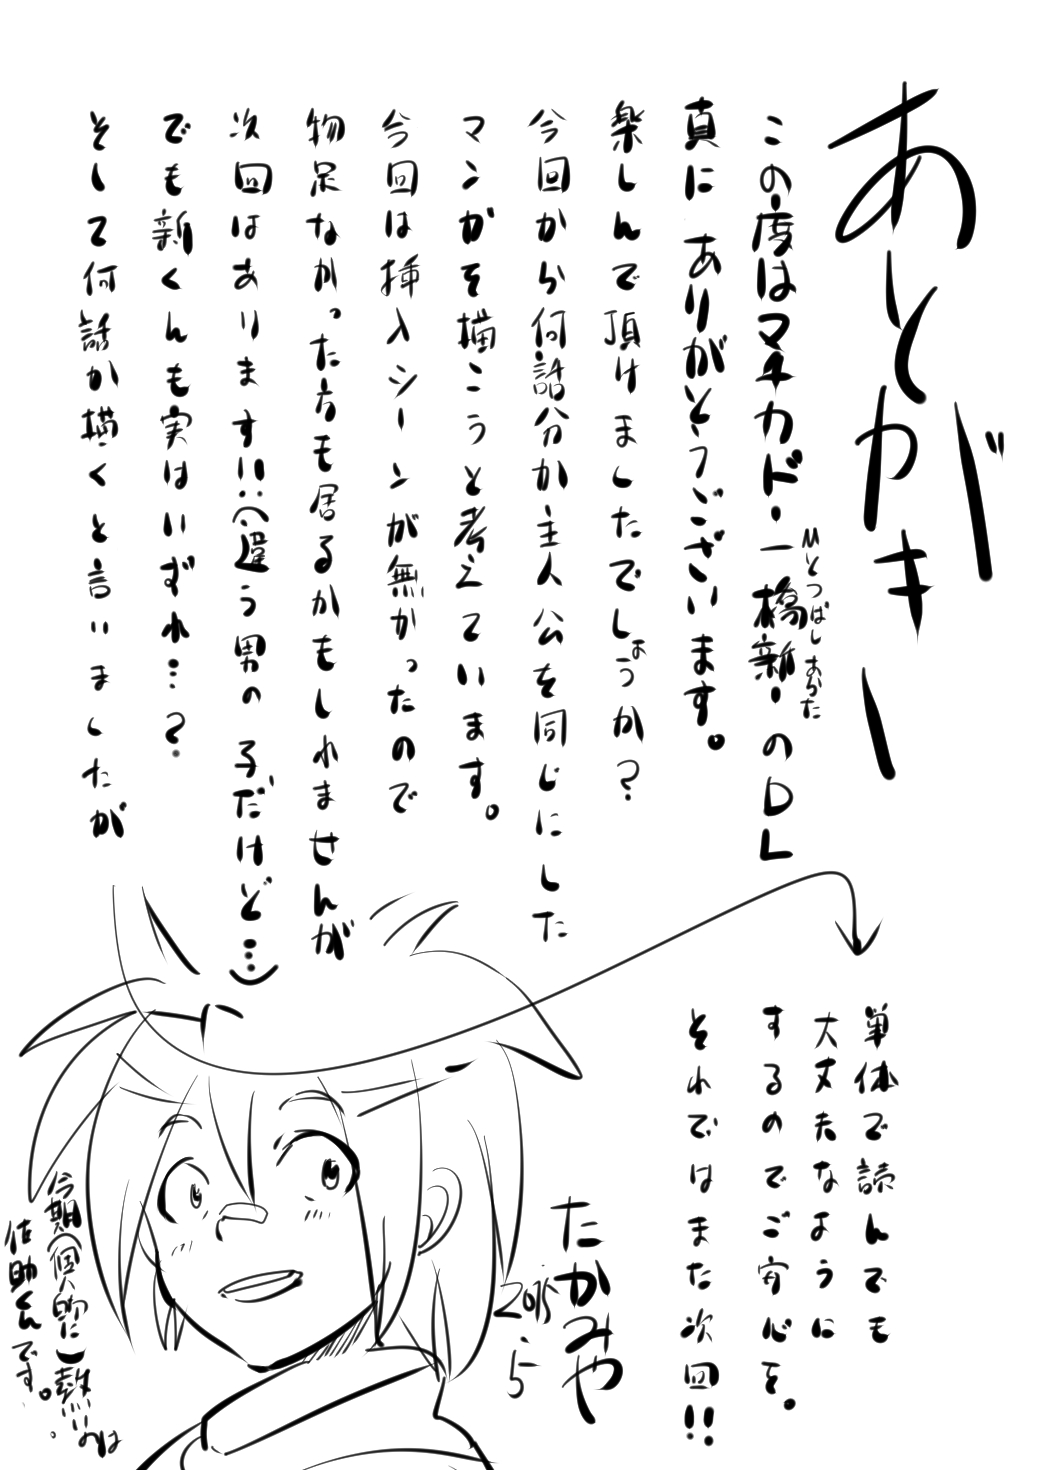 あとがきー
この度はマチカド・一橋新・のDL
ひとつばし あらた
真にありがとうございます。
楽しんで頂けましたでしょうか?
今回から何話分か主人公を同じにした
マンガを描こうと考えています。
今回は挿入シーンが無かったので
物足なかった方も居るかもしれませんが
次回はありますい!!(違う男の子だけど…)
でも新くんも実はいずれ…?
そして何話か描くと言いましたが
単体で読んでも
大丈夫なように
するのでご安心を。
それではまた次回!!
たかみや
2015.5
今期(個人的に)熱いのは
佐助くんです。